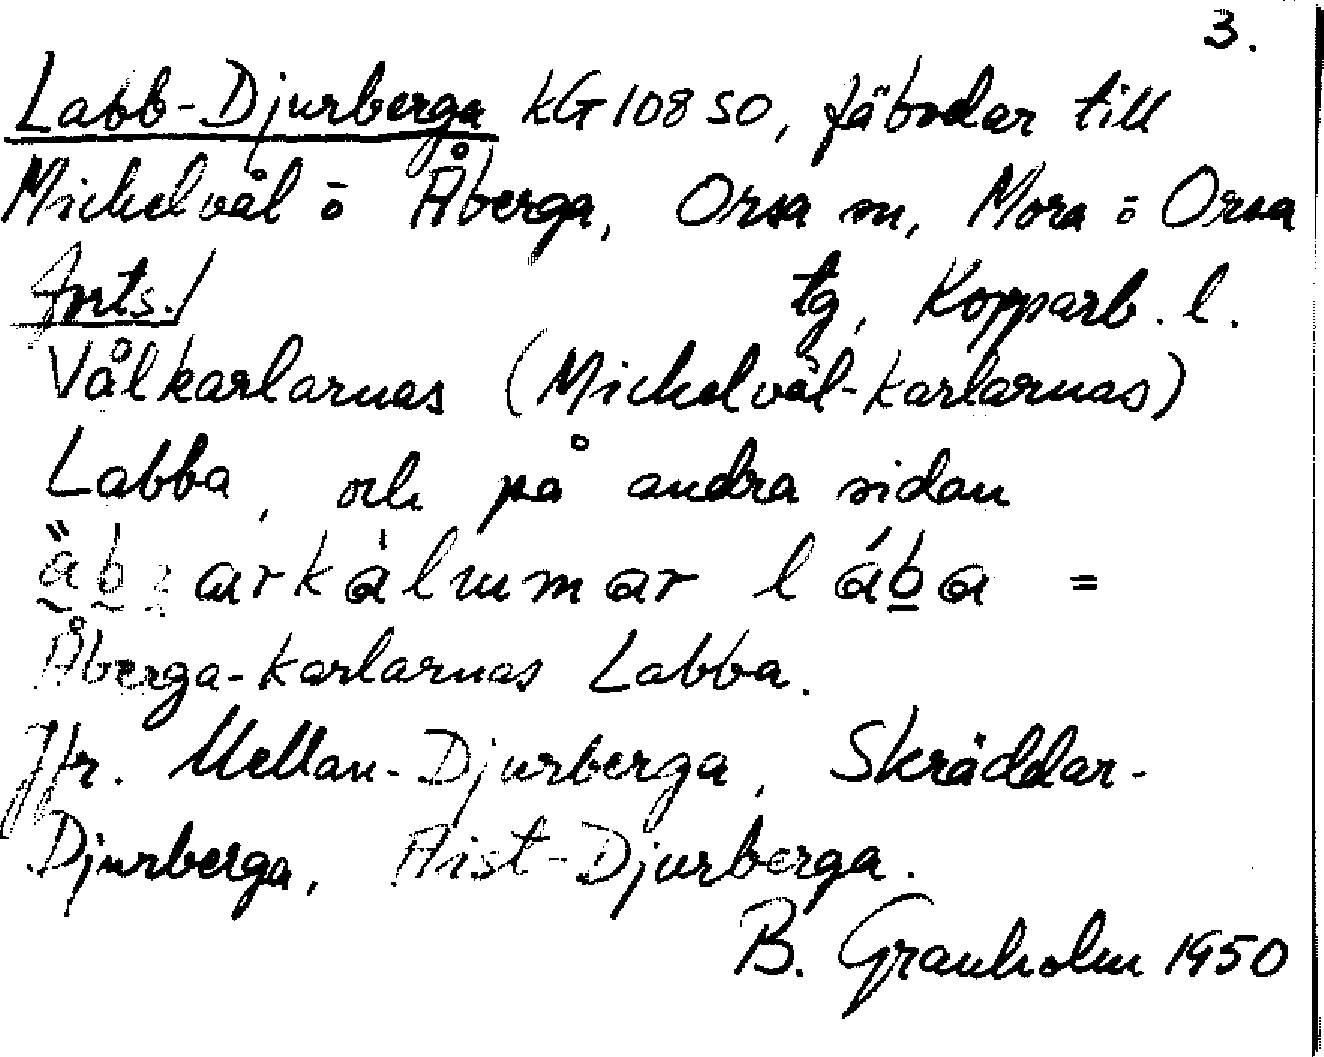 3.
Labb-Djurberga kG 108 SO, fäbodar till
Mickelvål o Åberga, Orsa sn, Mora o Orsa
forts./ tg, Kopparb. l.
Vålkarlarnas (Mickelvål-karlarnas)
Labba, och på andra sidan
arkàlumar lába =
Åberga-karlarnas Labba.
Jfr. Mellan-Djurberga, Skräddar-
Djurberga, Aist-Djurberga.
B. Granholm 1950